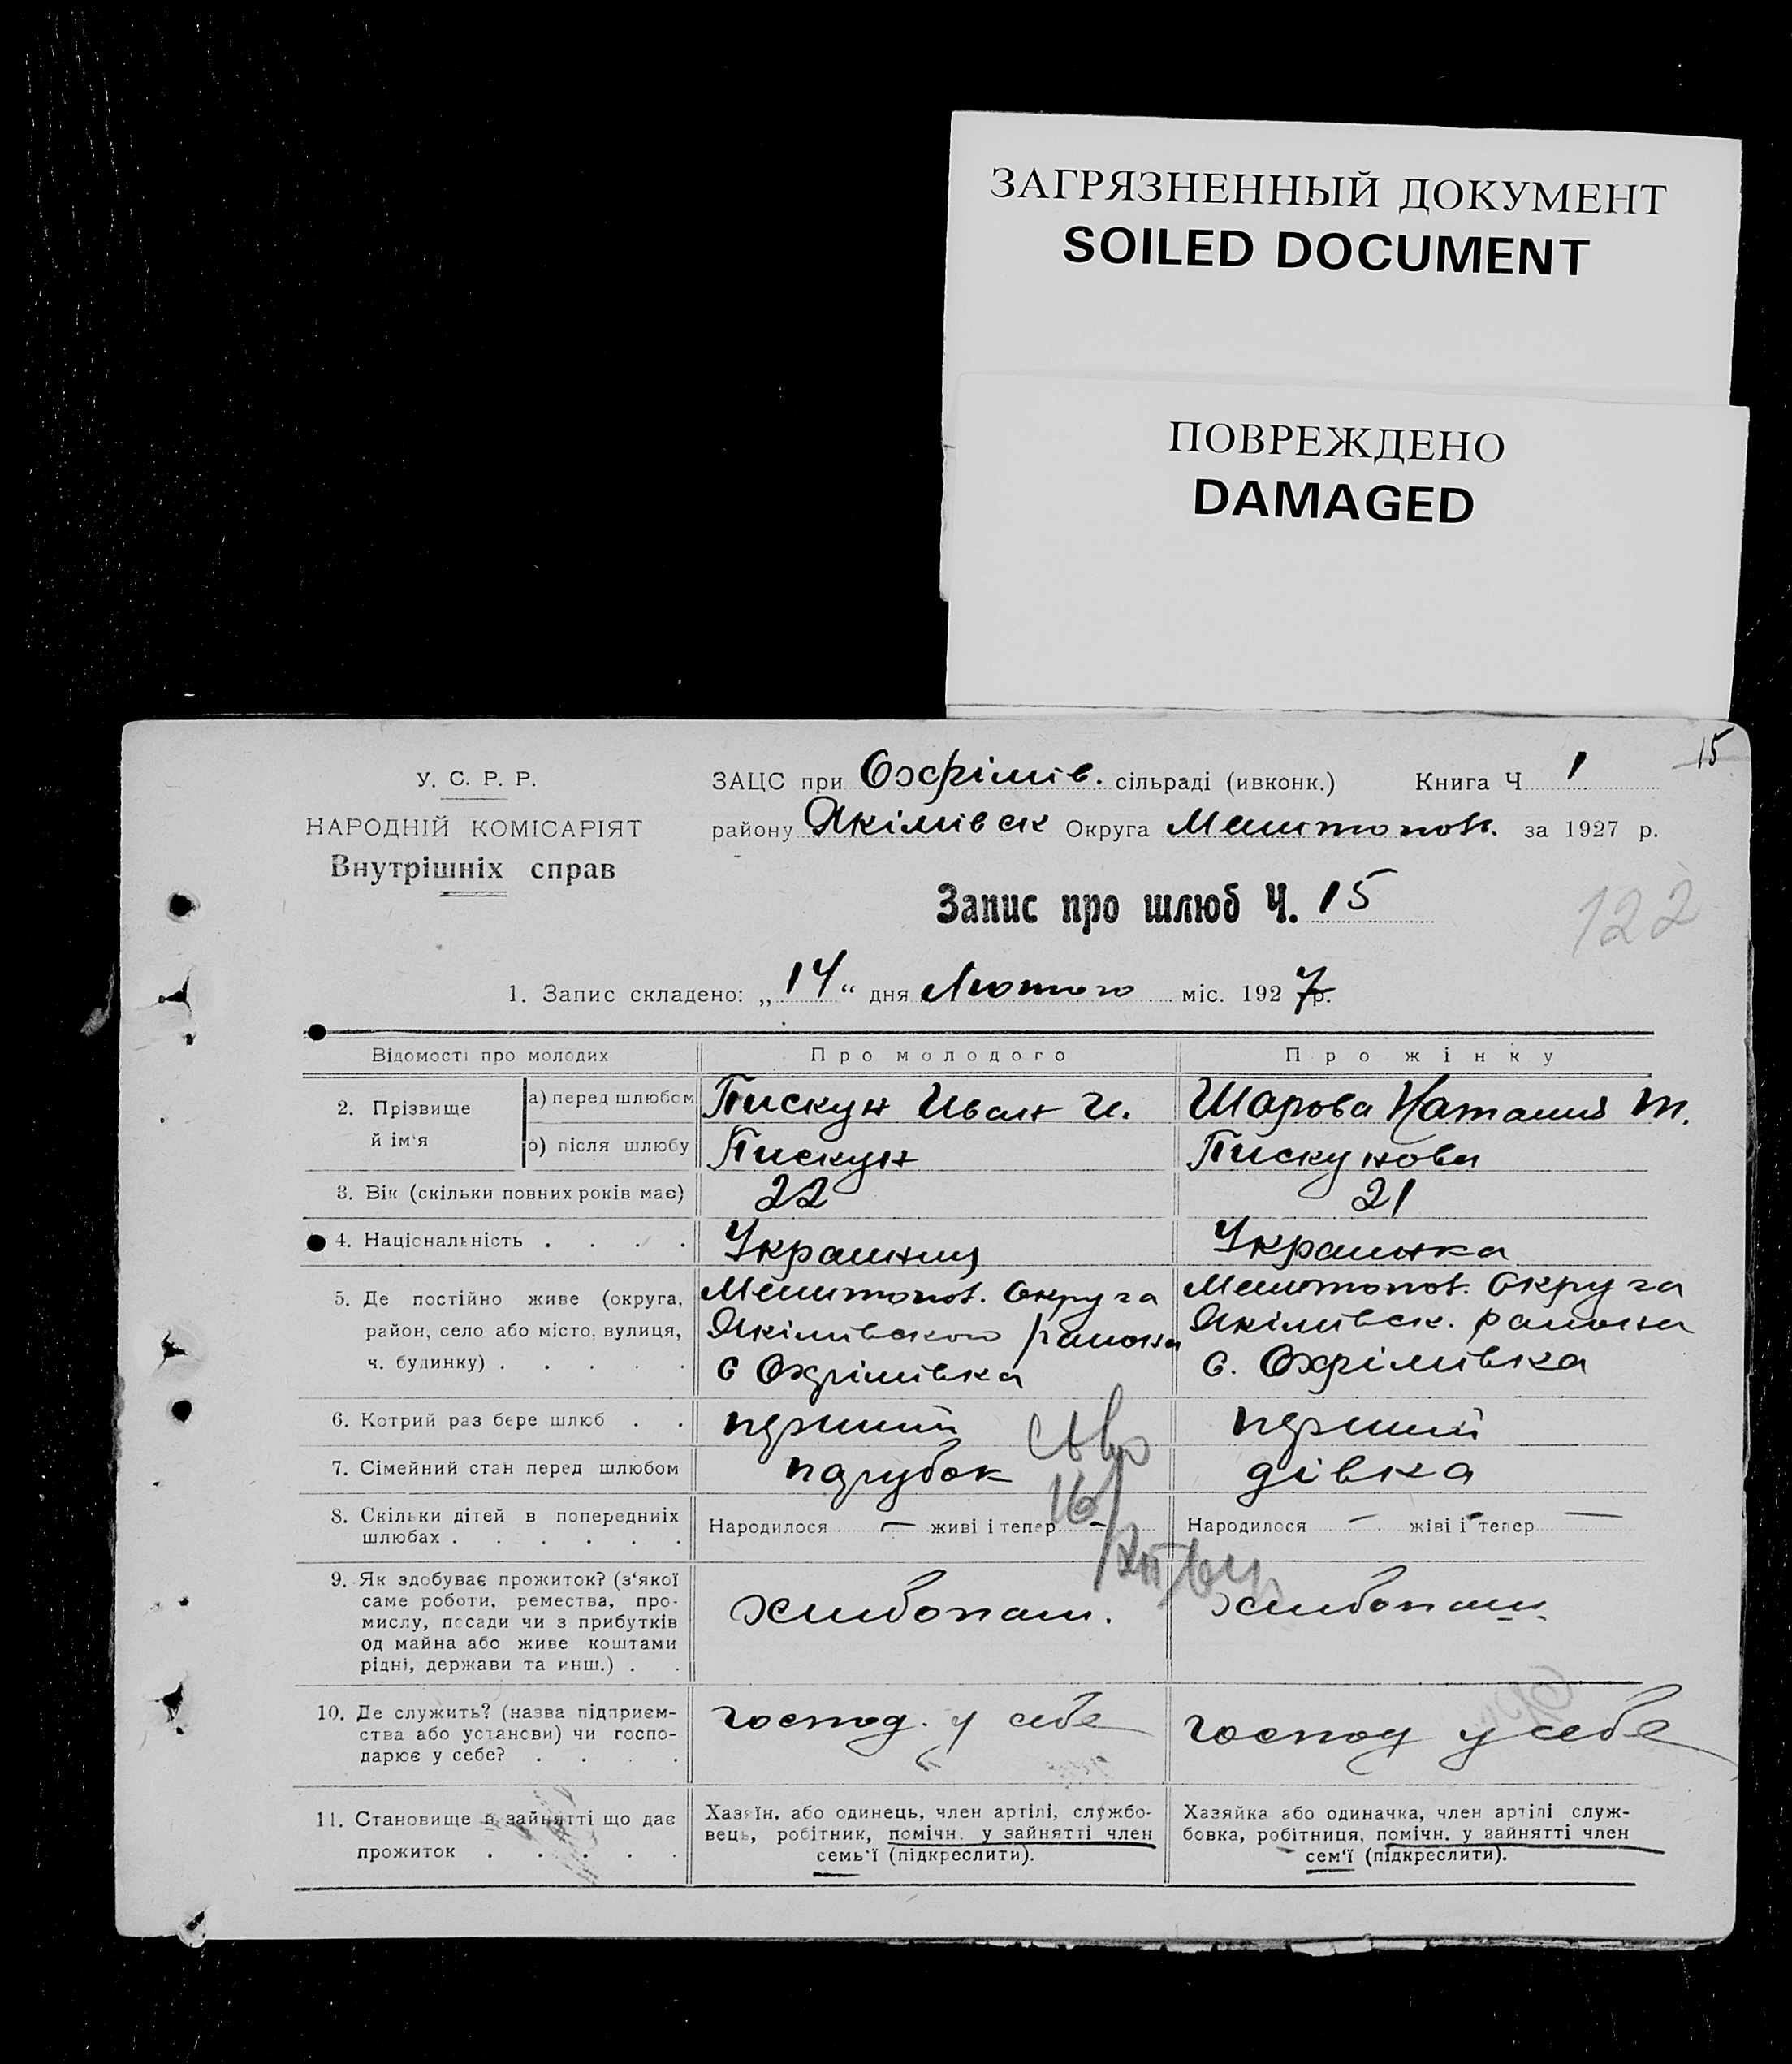 ЗАГРЯЗНЕННЫЙ ДОКУМЕНТ
SOILED DOCUMENT
ПОВРЕЖДЕНО
DAMAGED
15
У. С. Р. Р.
НАРОДНІЙ КОМІСАРІЯТ
Внутрішніх справ
ЗАЦС при Охрімів. сільраді (ивконк.) Книга Ч 1
району Якімівск Округа Мелитопол. за 1927 р.
Запис про шлюб Ч. 15
122
1. Запис складено: „14“ дня Лютого міс. 1927 р.
Відомості про молодих Про молодого Про жінку
2. Прізвище й ім'я
а) перед шлюбом Пискун Иван И. Шарова Наталия Т.
б) після шлюбу Пискун Пискунова
3. Вік (скільки повних років має) 22 21
4. Національність . . . . Украинец Украинка
5. Де постійно живе (округа, Мелитопол. Округа Мелитопол. Округа
район, село або місто, вулиця, Якімівского района Якімівск. района
ч. будинку) . . . . . с Охрімівка с. Охрімівка
6. Котрий раз бере шлюб . . перший перший
7. Сімейний стан перед шлюбом парубок дівка
8. Скільки дітей в попередниіх Народилося — живі і тепер — Народилося — жіві і тепер —
шлюбах . . . . . .
9. Як здобуває прожиток? (з'якої
саме роботи, ремества, про-
мислу, посади чи з прибутків хлибопаш. хлибопаш.
од майна або живе коштами
рідні, держави та инш.) . .
10. Де служить? (назва підприєм-
ства або установи) чи госпо- господ. у себе господ у себе
дарює у себе? . . . .
11. Становище в зайнятті що дає Хазяїн, або одинець, член артілі, службо- Хазяйка або одиначка, член артілі служ-
прожиток . . . . . вець, робітник, помічн. у зайнятті член бовка, робітниця, помічн. у зайнятті член
семь'ї (підкреслити). сем'ї (підкреслити).